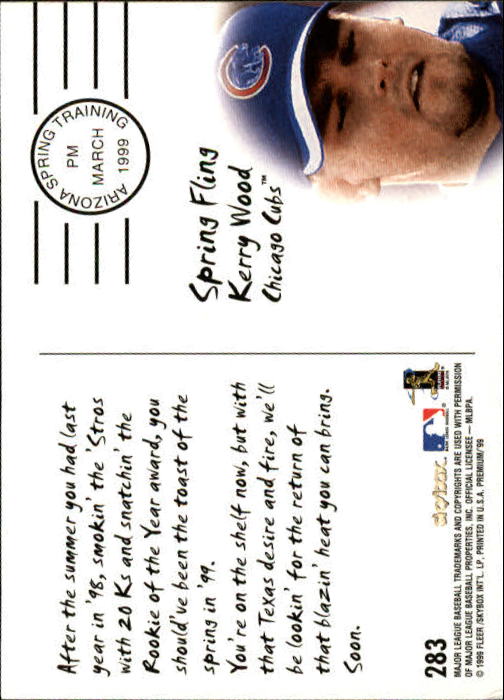 ARIZONA SPRING TRAINING
PM
MARCH
1999
Spring Fling
Kerry Wood
Chicago Cubs™
After the summer you had last
year in '98, smokin' the 'Stros
with 20 Ks and snatchin' the
Rookie of the Year award, you
should've been the toast of the
spring in '99.
You're on the shelf now, but with
that Texas desire and fire, we'll
be lookin' for the return of
that blazin' heat you can bring.
Soon.
skybox
MAJOR LEAGUE BASEBALL TRADEMARKS AND COPYRIGHTS ARE USED WITH PERMISSION
OF MAJOR LEAGUE BASEBALL PROPERTIES, INC. OFFICIAL LICENSEE — MLBPA.
© 1999 FLEER /SKYBOX INT'L. LP, PRINTED IN U.S.A. PREMIUM/'99
283